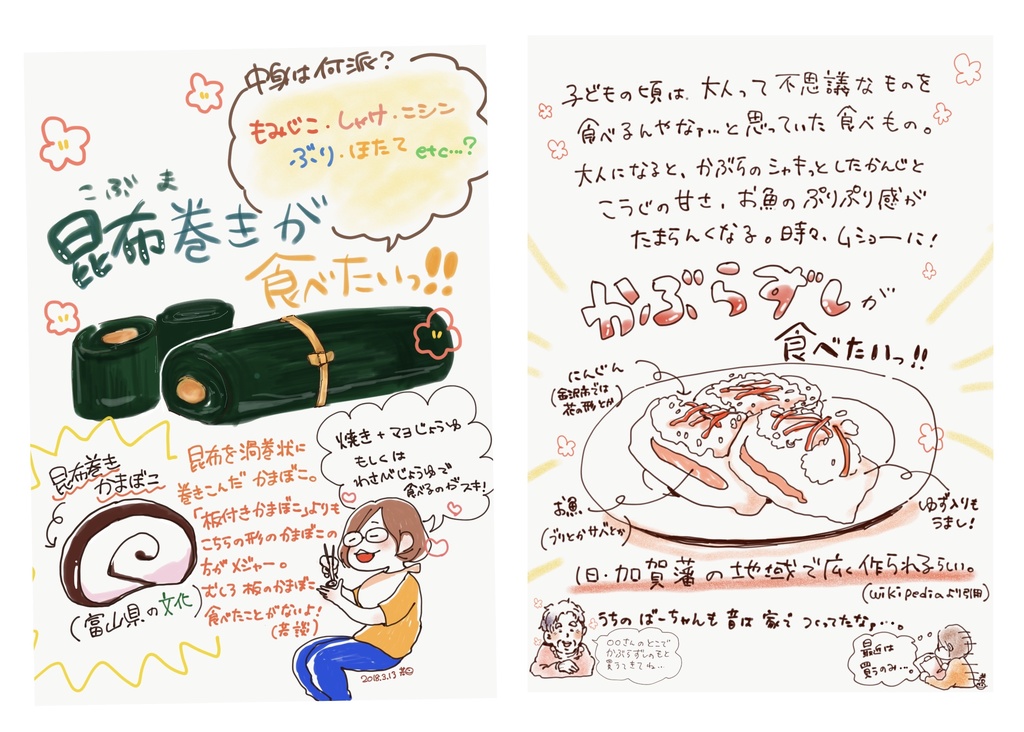 中身は何派？
もみじこ・しゃけ・ニシン
ぶり・ほたて etc…?
こぶ ま
昆布巻きが
食べたいっ!!
焼き+マヨじょうゆ
もしくは
わさびじょうゆで
食べるのがスキ!
昆布巻き
かまぼこ
(富山県の文化)
昆布を渦巻状に
巻きこんだ かまぼこ。
「板付きかまぼこ」よりも
こちらの形のかまぼこの
方がメジャー。
むしろ 板のかまぼこ
食べたことがないよ!
(若談)
2018.3.13
子どもの頃は、大人って不思議なものを
食べるんやなァ…と思っていた 食べもの。
大人になると、かぶらのシャキっとしたかんじと
こうじの甘さ、お魚のぷりぷり感が
たまらんくなる。時々、ムショーに!
かぶらずしが
食べたいっ!!
にんじん
(金沢市では
花の形とか)
お魚
(ブリとかサバとか)
ゆず入りも
うまし!
旧・加賀藩の地域で広く作られるらしい。
(wikipediaより引用)
うちの ばーちゃんも 昔は 家で つくってたなァ…。
○○さんのとこで
かぶらずしのもと
買うてきてね…
最近は
買うのみ…。